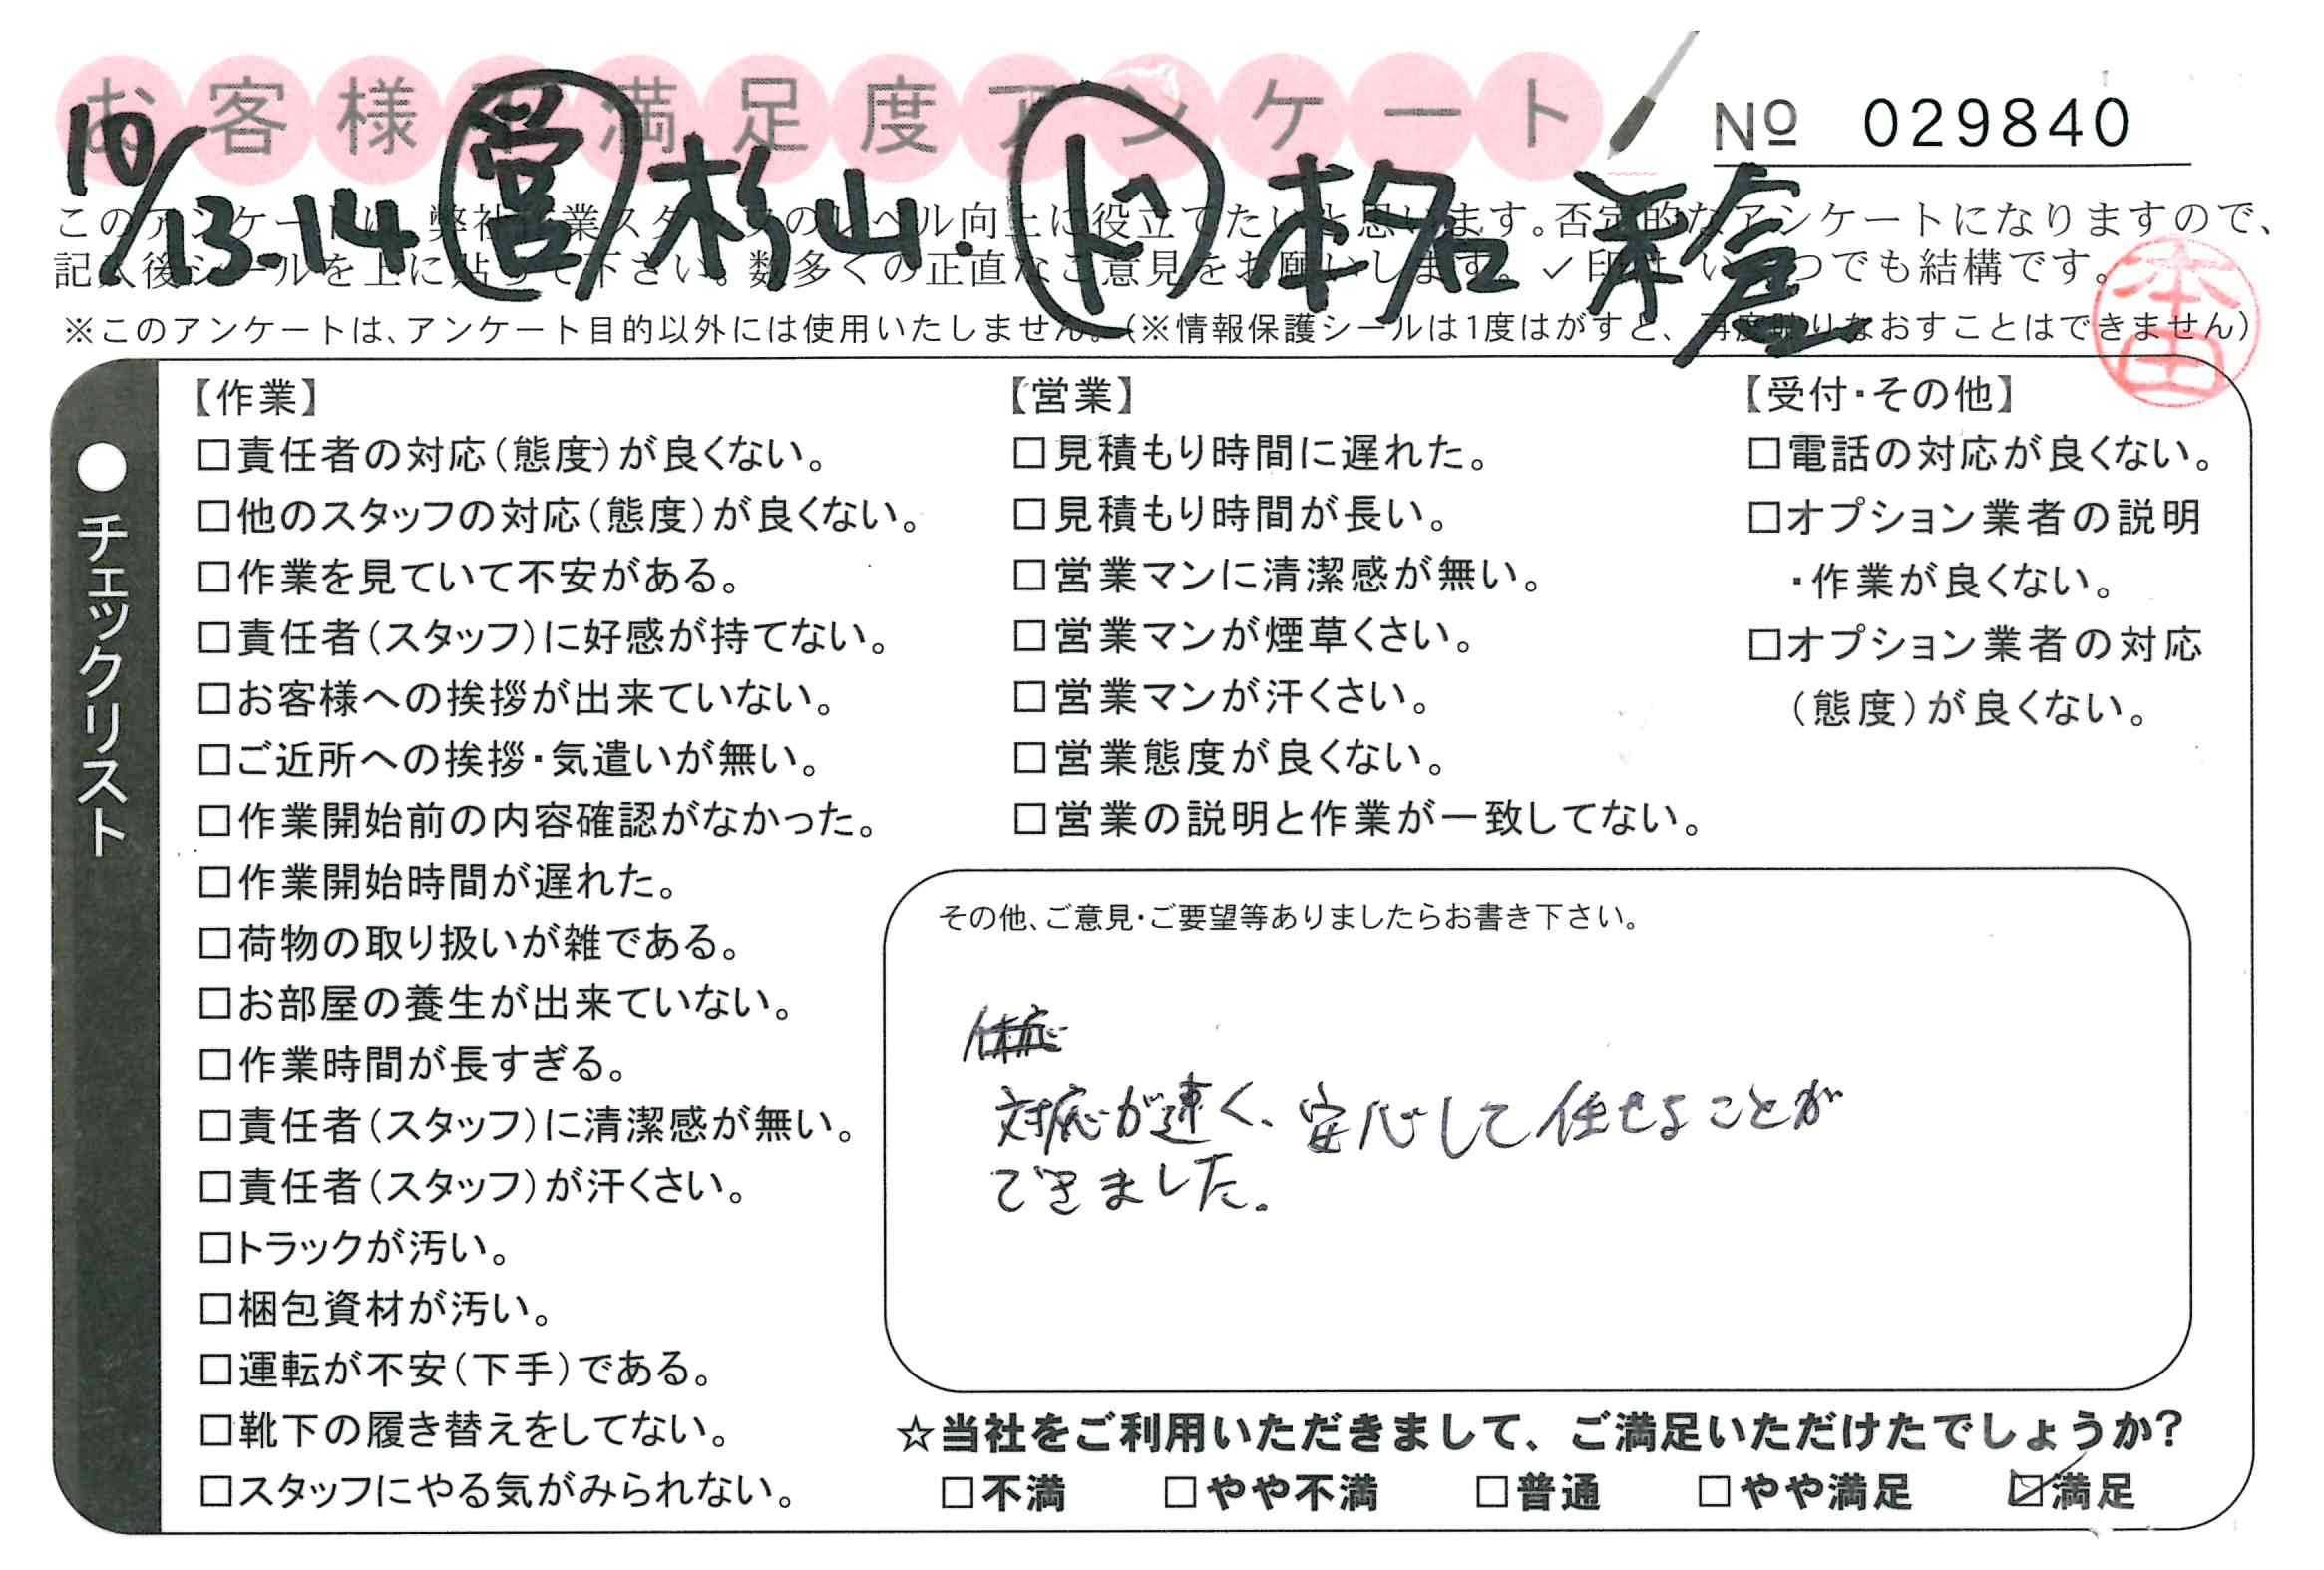 お客様不満足度アンケート
№ 029840
10/13-14 営 杉山. ト 本名
このアンケートは、弊社作業スタッフのレベル向上に役立てたいと思います。否定的なアンケートになりますので、
記入後シールを上に貼って下さい。数多くの正直なご意見をお願いします。✓印は いくつでも結構です。
※このアンケートは、アンケート目的以外には使用いたしません。(※情報保護シールは1度はがすと、再度貼りなおすことはできません)
本田
●チェックリスト
【作業】
□責任者の対応(態度)が良くない。
□他のスタッフの対応(態度)が良くない。
□作業を見ていて不安がある。
□責任者(スタッフ)に好感が持てない。
□お客様への挨拶が出来ていない。
□ご近所への挨拶・気遣いが無い。
□作業開始前の内容確認がなかった。
□作業開始時間が遅れた。
□荷物の取り扱いが雑である。
□お部屋の養生が出来ていない。
□作業時間が長すぎる。
□責任者(スタッフ)に清潔感が無い。
□責任者(スタッフ)が汗くさい。
□トラックが汚い。
□梱包資材が汚い。
□運転が不安(下手)である。
□靴下の履き替えをしてない。
□スタッフにやる気がみられない。
【営業】
□見積もり時間に遅れた。
□見積もり時間が長い。
□営業マンに清潔感が無い。
□営業マンが煙草くさい。
□営業マンが汗くさい。
□営業態度が良くない。
□営業の説明と作業が一致してない。
【受付・その他】
□電話の対応が良くない。
□オプション業者の説明
・作業が良くない。
□オプション業者の対応
(態度)が良くない。
その他、ご意見・ご要望等ありましたらお書き下さい。
対応が速く、安心して任せることが
できました。
☆当社をご利用いただきまして、ご満足いただけたでしょうか?
□不満 □やや不満 □普通 □やや満足 ☑満足